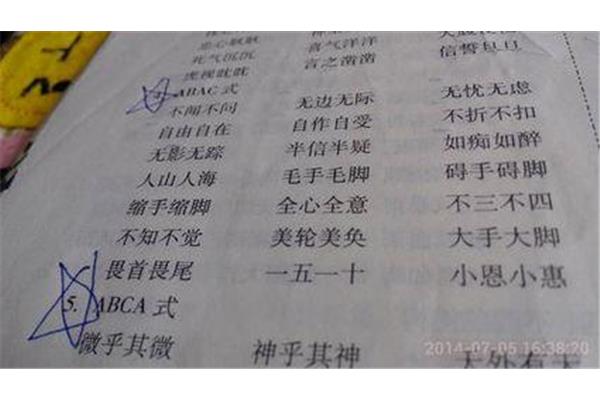 忠心耿耿
死气沉沉 喜气洋洋
虎视眈眈 言之凿凿 信誓旦旦
ABAC 式
不闻不问 无边无际 无忧无虑
自由自在 自作自受 不折不扣
无影无踪 半信半疑 如痴如醉
人山人海 毛手毛脚 碍手碍脚
缩手缩脚 全心全意 不三不四
不知不觉 美轮美奂 大手大脚
畏首畏尾 一五一十 小恩小惠
5. ABCA 式
微乎其微 神乎其神 天外有天
2014-07-05 16:38:20